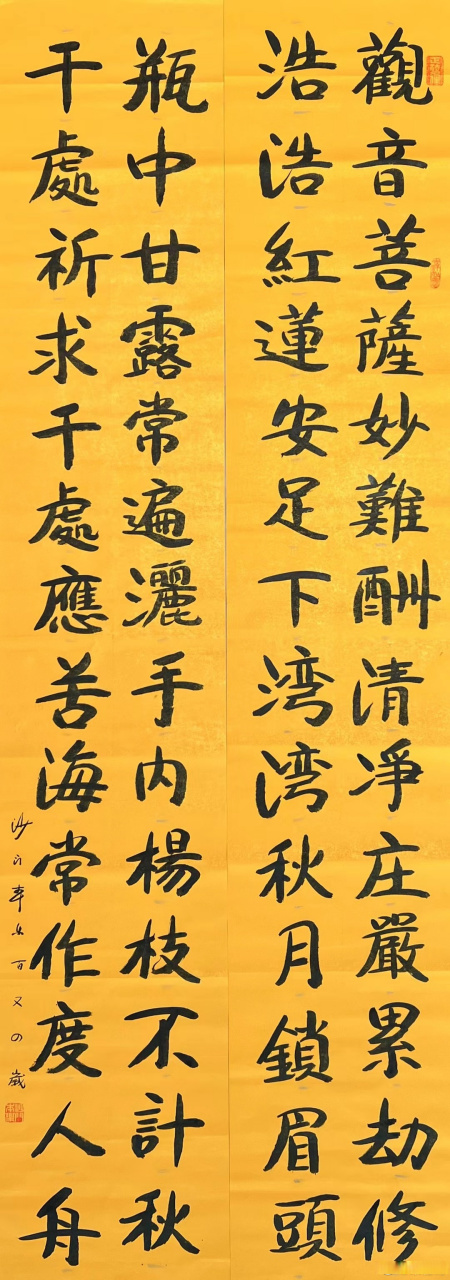 觀音菩薩妙難酬清凈庄嚴累劫修
浩浩紅蓮安足下湾湾秋月鎖眉頭
瓶中甘露常遍灑手内楊枝不計秋
千處祈求千處應苦海常作度人舟
沙门本焕百又〇歲